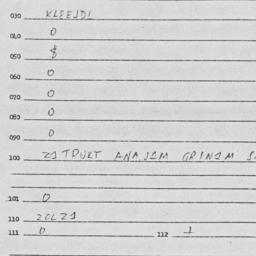 030 KLEEJDI
040 0
050 $
060 0
070 0
080 0
090 0
100 ANAJIM GRINIM
101 0
110 2CLZ1
111 0 112 1